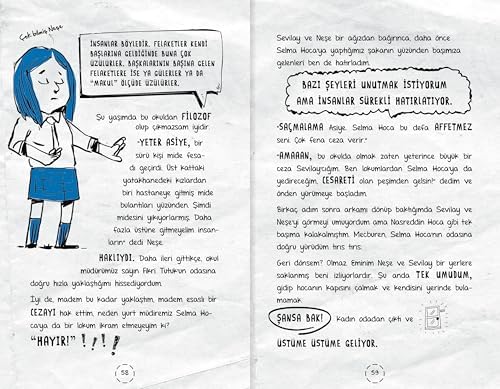 Çok bilmiş Neşe
İNSANLAR BÖYLEDİR. FELAKETLER KENDİ
BAŞLARINA GELDİĞİNDE BUNA ÇOK
ÜZÜLÜRLER. BAŞKALARININ BAŞINA GELEN
FELAKETLERE İSE YA GÜLERLER YA DA
"MAKUL" ÖLÇÜDE ÜZÜLÜRLER.
Şu yaşımda bu okuldan FİLOZOF
olup çıkmazsam iyidir.
-YETER ASİYE, bir
sürü kişi mide fesa-
dı geçirdi. Üst kattaki
yatakhanedeki kızlardan
biri hastaneye gitmiş mide
bulantıları yüzünden. Şimdi
midesini yıkıyorlarmış. Daha
fazla üstüne gitmeyelim insan-
ların" dedi Neşe.
HAKLIYDI. Daha ileri gittikçe, okul
müdürümüz sayın Fikri Tutuk'un odasına
doğru hızla yaklaştığımı hissediyordum.
İyi de, madem bu kadar yaklaştım, madem esaslı bir
CEZAYI hak ettim, neden yurt müdiremiz Selma Ho-
ca'ya da bir lokum ikram etmeyeyim ki?
"HAYIR!" ! ! ! !
58
Sevilay ve Neşe bir ağızdan bağırınca, daha önce
Selma Hoca'ya yaptığımız şakanın yüzünden başımıza
gelenleri ben de hatırladım.
BAZI ŞEYLERİ UNUTMAK İSTİYORUM
AMA İNSANLAR SÜREKLİ HATIRLATIYOR.
-SAÇMALAMA Asiye. Selma Hoca bu defa AFFETMEZ
seni. Çok fena ceza verir."
-AMAAAN, bu okulda olmak zaten yeterince büyük bir
ceza Sevilaycığım. Ben lokumlardan Selma Hoca'ya da
yedireceğim. CESARETİ olan peşimden gelsin!" dedim ve
önden yürümeye başladım.
Birkaç adım sonra arkamı dönüp baktığımda Sevilay ve
Neşe'yi görmeyi umuyordum ama Nasreddin Hoca gibi tek
başıma kalakalmıştım. Mecburen, Selma Hoca'nın odasına
doğru yürüdüm tırıs tırıs.
Geri dönsem? Olmaz. Eminim Neşe ve Sevilay bir yerlere
saklanmış beni izliyorlardır. Şu anda TEK UMUDUM,
gidip hocanın kapısını çalmak ve kendisini yerinde bula-
mamak.
ŞANSA BAK! kadın odadan çıktı ve
ÜSTÜME ÜSTÜME GELİYOR.
59